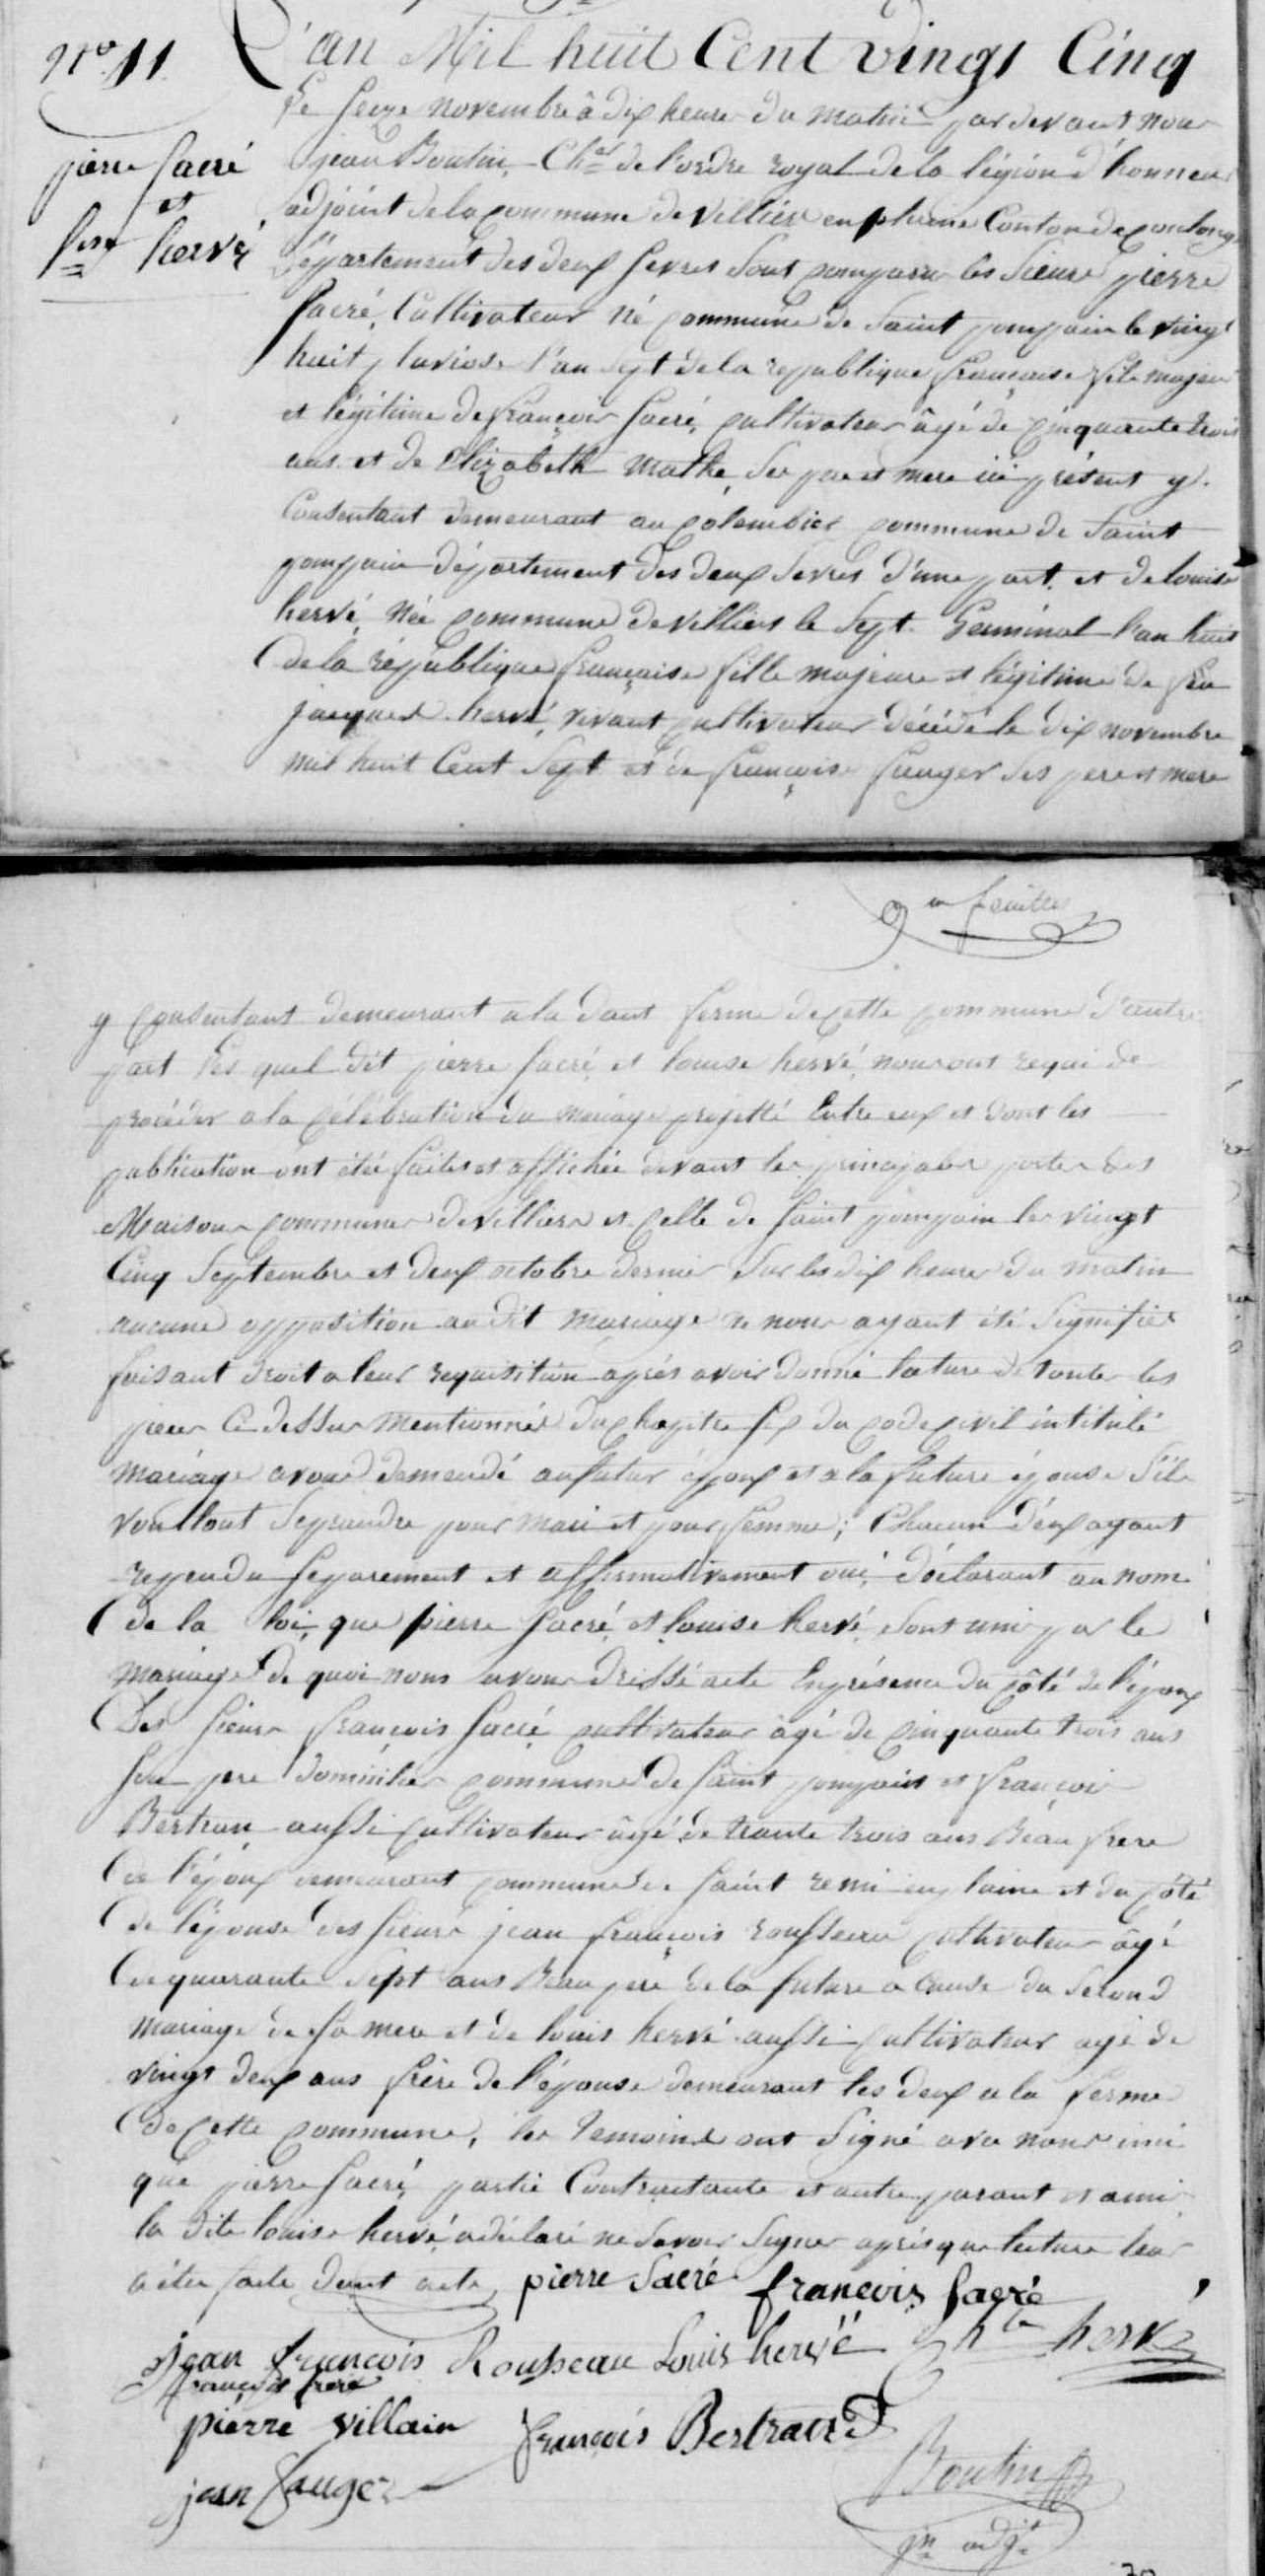 N.o 11
L'an Mil huit Cent vingt Cinq
pierre Sacré
et
hervé
Le seize novembre à dix heure du matin par devant nous
jean Boutin, Cher de l'ordre royal de la légion d'honneur
adjoint de la commune de Villiers en plaine Canton de Coulonge
Département des deux sevres sont comparu les sieurs pierre
Sacré, Cultivateur né commune de Saint pompain le vingt
huit pluviose l'an sept de la republique française fils majeur
et légitime de françois Sacré, cultivateur âgé de cinquante trois
ans et de Elizabeth Mathé, ses pere et mere ici présent y
Consentant demeurant au Colombier commune de Saint
pompain département des deux Sevres d'une part, et de louise
hervé, née commune de Villiers le Sept Germinal l'an huit
de la république française fille majeure et légitime de feu
jacques hervé, vivant cultivateur décédé le dix novembre
mil huit Cent Sept et de françoise fauger ses pere et mere
feuillet
y consentant demeurant a la ferme de cette commune d'autre
part Les quel dit pierre Sacré et louise hervé, nous ont requi de
procéder a la célébration du mariage projetté Entre eux et dont les
publication ont étée faites et affichée devant les principales portes des
Maisons communes de Villiers et celle de Saint pompain les vingt
Cinq Septembre et deux octobre dernier sur les dix heures du matin
aucune opposition audit mariage ne nous ayant été Signifiée
faisant droit a leur requisition après avoir donné lecture de toutes les
pieces Ci dessus mentionnés du chapitre six du code civil intitulé
mariage avons demandé au futur époux et a la future épouse s'ils
voulloit se prendre pour mari et pour femme; Chacun d'eux ayant
repondu séparement et affirmativement oui, déclarant au nom
de la loi, que pierre Sacré, et louise hervé, sont uni par le
mariage de quoi nous avons dressé acte En présence du côté de l'époux
Des sieurs françois Sacré, cultivateur âgé de cinquante trois ans
son pere domicilier commune de Saint pompain et françois
Bertran aussi cultivateur âgé de trante trois ans Beau frere
de l'époux demeurant commune de Saint remi en plaine et du côté
de l'épouse des sieurs jean françois rousseau cultivateur âgé
de quarante Sept ans Beau pere de la future a Cause du Second
mariage de sa mere et de louis hervé aussi cultivateur agé de
vingt deux ans frère de l'épouse demeurant les deux a la ferme
de cette commune, les temoins ont Signé avec nous
que pierre Sacré, partie Contractante et autre parant et ami
la dite louise hervé, a déclaré ne savoir signer après que lecture leur
a étée faite dont acte, pierre Sacré françois Sacré
jean françois Rousseau Louis hervé hervé
françois
pierre villain françois Bertrand
jean fauger Boutin
jn adjt